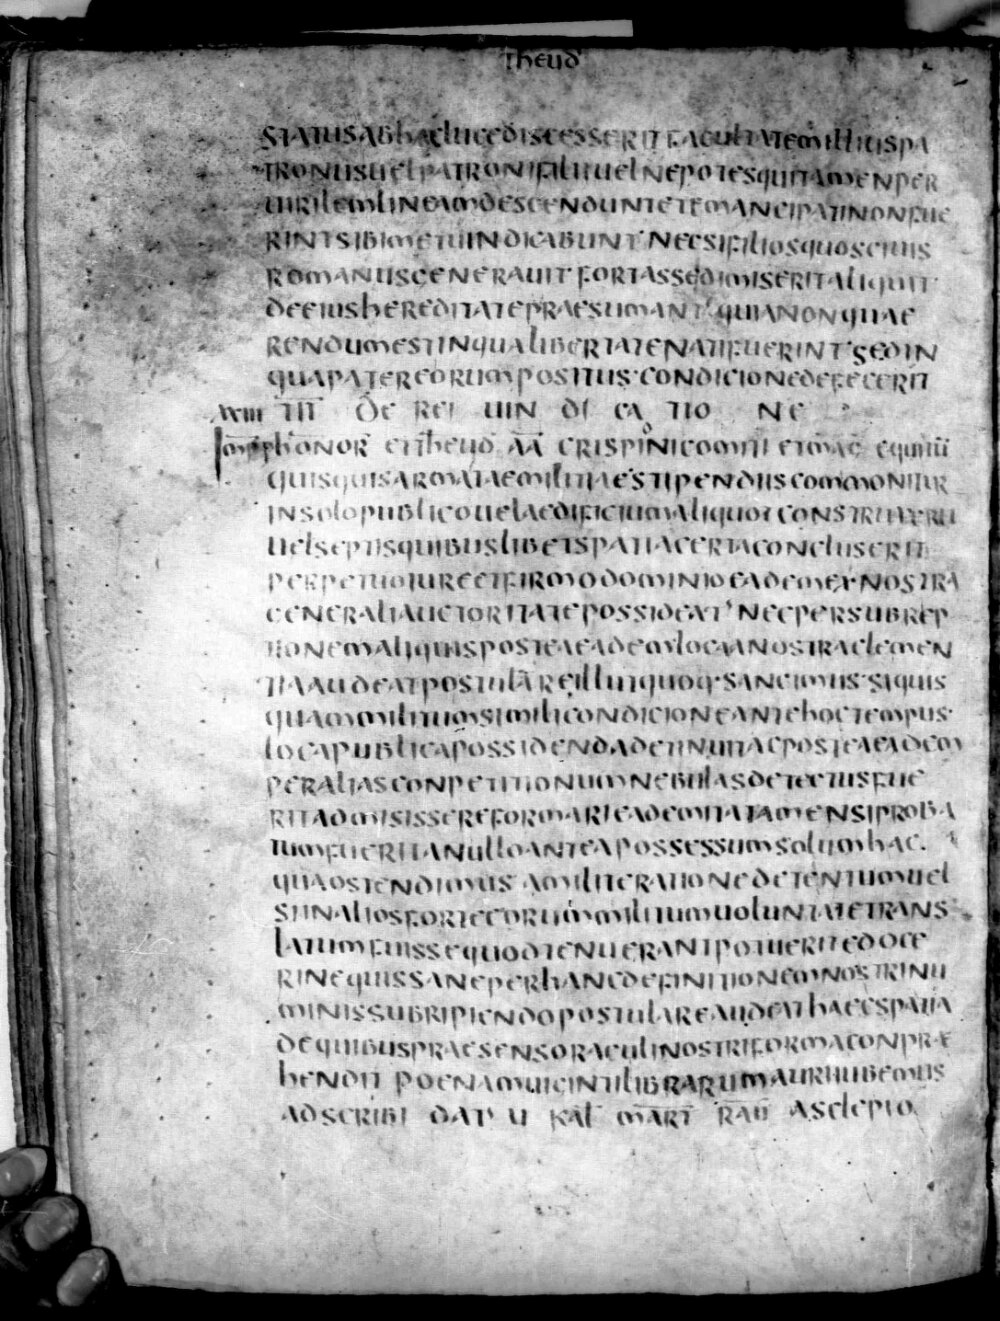 Theud
STATUSABHACLUCEDISCESSERITFACULTATEMILLIUSPA
TRONUSUELPATRONIFILIIUELNEPOTESQUITAMENPER
UIRILEMLINEAMDESCENDUNTETEMANCIPATINONFUE
RINTSIBIMETUINDICABUNT·NECSIFILIOSQUOSCIUIS
ROMANUSGENERAUIT·FORTASSEDIMISERITALIQUIT
DEEIUSHEREDITATEPRAESUMANT·QUIANONQUAE
RENDUMESTINQUALIBERTATENATIFUERINT·SEDIN
QUAPATEREORUMPOSITUS·CONDICIONEDEFECERIT
XXIII TIT DE REI UIN DI CA TIO NE
Impp hONOR̄ ETTheud ĀĀ CRISPINOCOMITI ETMAG̅ equitū
QUISQUISARMATAEMILITIAESTIPENDIISCOMMONITUR
INSOLOPUBLICOUELAEDIFICIUMALIQUOTCONSTRUXERU
UELSEPTISQUIBUSLIBETSPATIACERTACONCLUSERIT
PERPETUOIURECTFIRMODOMINIOEADEMEX·NOSTRA
GENERALIAUCTORITATEPOSSIDEAT·NECPERSUBREP
TIONEMALIQUISPOSTEAEADEMLOCAANOSTRACLEMEN
TIAAUDEATPOSTULAREILLUTQUOQ·SANCIMUS·SIQUIS
QUAMMILITUMSIMILICONDICIONEANTEHOCTEMPUS·
LOCAPUBLICAPOSSIDENDADETINUITACPOSTEAEADEM
PERALIASCONPETITIONUMNEBULASDETECTUSFUE
RITADMISISSEREFORMARIEADEMITATAMENSIPROBA
TUMFUERITANULLOANTEAPOSSESSUMSOLUMHAC·
QUAOSTENDIMUS AMILITERATIONEDETENTUMUEL
SIINALIOSFORTEEORUMMILITUMUOLUNTATETRANS
LATUMFUISSEQUODTENUERANTPOTUERITEDOCE
RINEQUISSANEPERHANCDEFINITIONEMNOSTRINU
MINISSUBRIPIENDOPOSTULAREAUDEATHAECSPATIA
DEQUIBUSPRAESENSORACULINOSTRIFORMACONPRÆ
HENDIT POENAMUIGINTILIBRARUMAURIIUBEMUS
ADSCRIBI DAT U KAL̄ MART̄ RAŪ ASCLEPIO